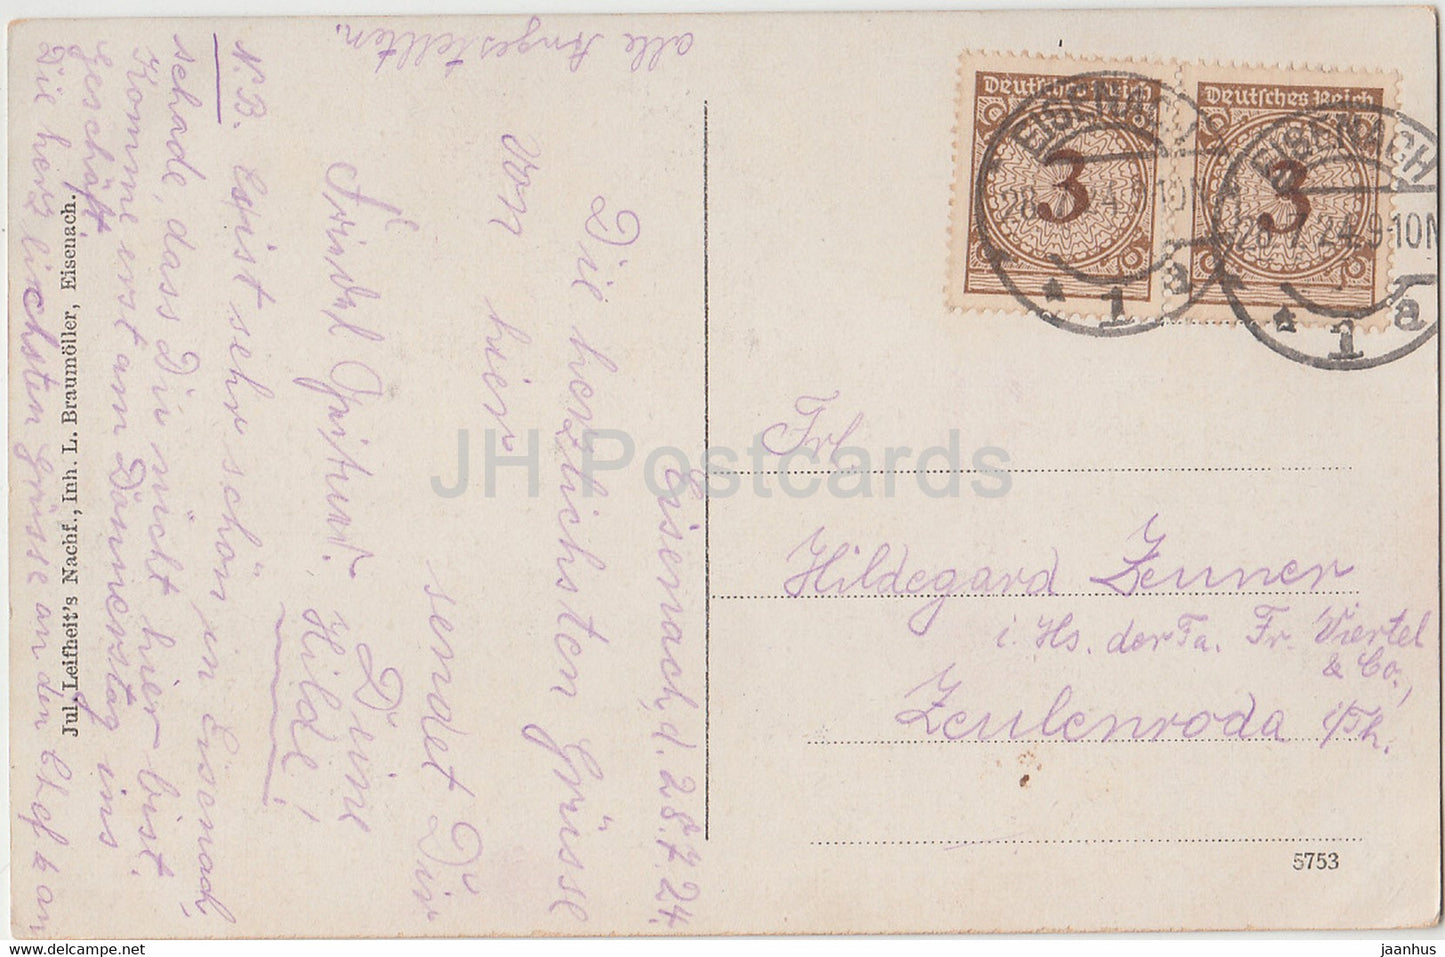 Eisenach, d. 28.7.24.
Die herzlichsten Grüsse
von hier
sendet Dir
Deine
Hilde!
N.B. Es ist sehr schön in Eisenach,
schade, dass Du nicht hier bist.
Komme erst am Donnerstag ins
Geschäft.
Die herzlichsten Grüsse an den Chef & an
alle Angestellten.
Jul. Leifheit's Nachf., Inh. L. Braumöller, Eisenach.
Deutsches Reich
3
Deutsches Reich
3
EISENACH
28 24 9-10N
* 1 a
EISENACH
28.7.24.9-10N
* 1 a
Frl.
Hildegard Zeuner
i. Hs. der Fa. Fr. Viertel
& Co.,
Zeulenroda i/Th.
5753
JH Postcards
www.delcampe.net
jaanhus